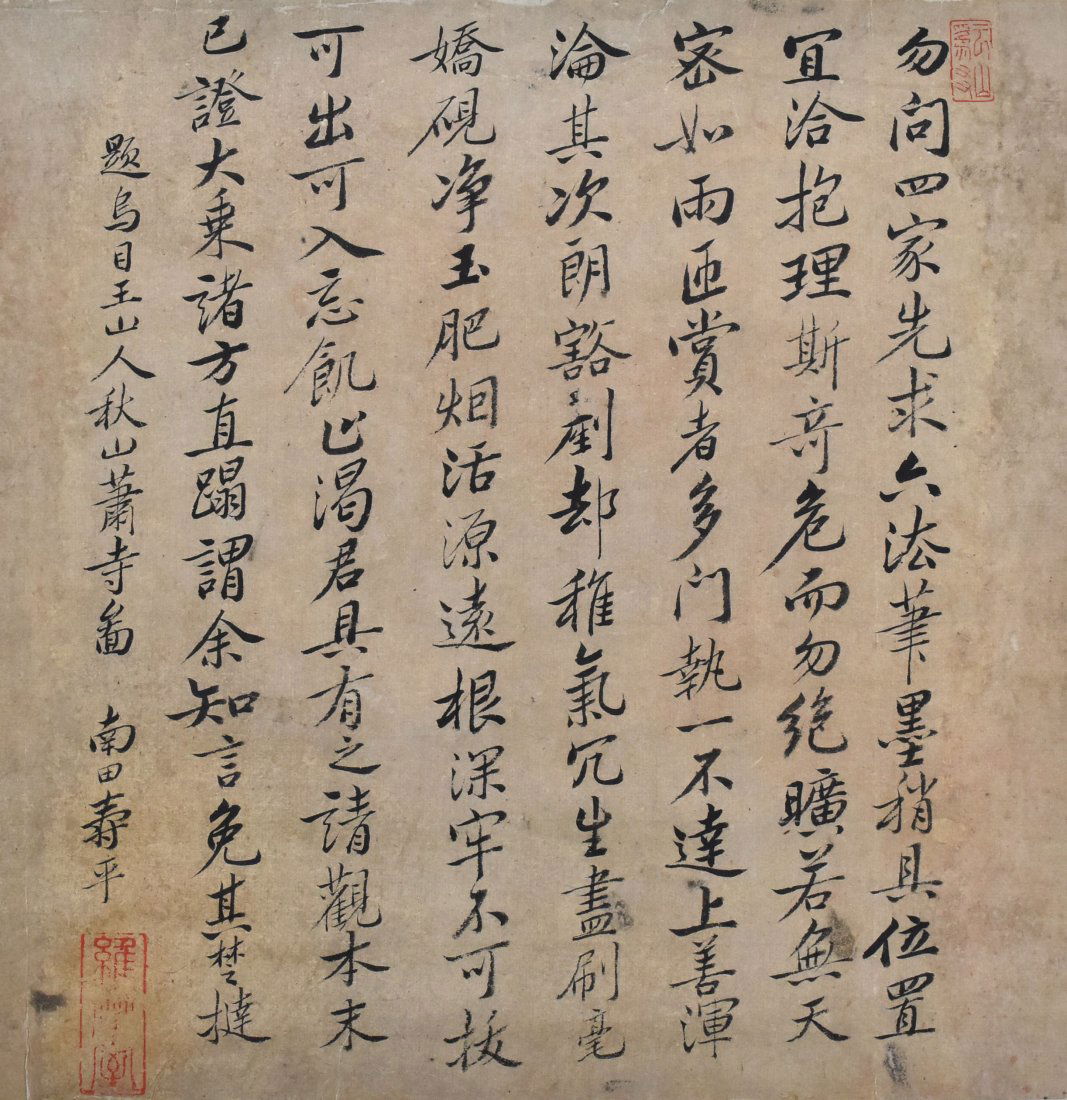 勿問四家先求六法筆墨稍具位置
宜洽抱理斯奇危而勿絶曠若無天
密如雨匝賞者多門執一不達上善渾
淪其次朗豁剷却稚氣冗生盡刷毫
嬌硯净玉肥烟活源遠根深牢不可拔
可出可入忘飢止渴君具有之請觀本末
已證大乘諸方直蹋謂余知言免其楚撻
題烏目王山人秋山蕭寺畣
南田壽平